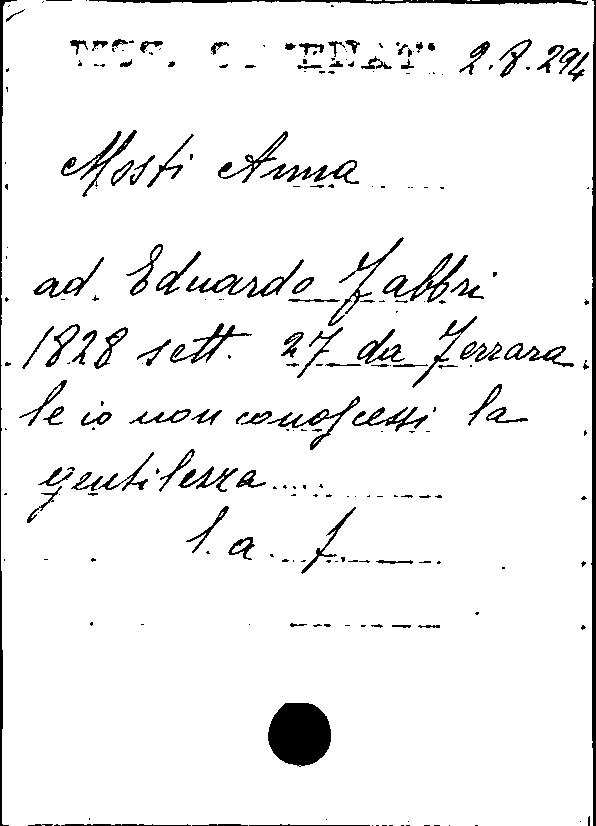 MSS. 2.8.294
Mosti Anna
ad Eduardo Fabbri
1828 sett. 27 da Ferrara
Se io non conoscessi la
gentilezza.....
l. a. f.